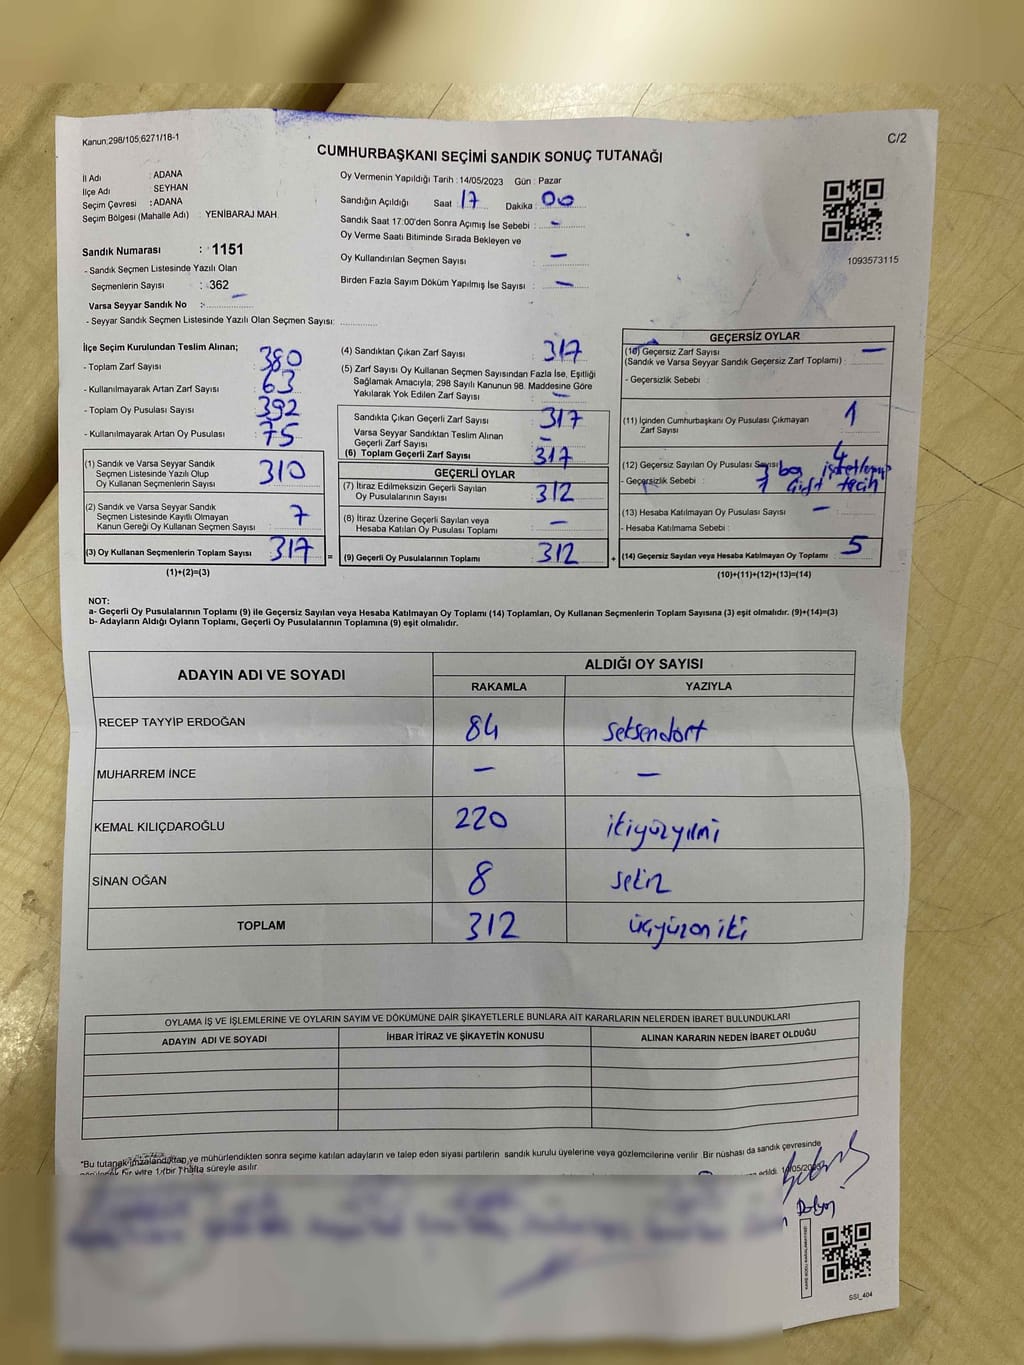 Kanun;298/105;6271/18-1
C/2
CUMHURBAŞKANI SEÇİMİ SANDIK SONUÇ TUTANAĞI
İl Adı : ADANA
İlçe Adı : SEYHAN
Seçim Çevresi : ADANA
Seçim Bölgesi (Mahalle Adı) : YENİBARAJ MAH.
Oy Vermenin Yapıldığı Tarih : 14/05/2023 Gün : Pazar
Sandığın Açıldığı Saat 17 Dakika : 00
Sandık Saat 17:00'den Sonra Açımış İse Sebebi : -
Oy Verme Saati Bitiminde Sırada Bekleyen ve
Oy Kullandırılan Seçmen Sayısı : -
Birden Fazla Sayım Döküm Yapılmış İse Sayısı : -
1093573115
Sandık Numarası : 1151
- Sandık Seçmen Listesinde Yazılı Olan
Seçmenlerin Sayısı : 362
Varsa Seyyar Sandık No : -
- Seyyar Sandık Seçmen Listesinde Yazılı Olan Seçmen Sayısı:
İlçe Seçim Kurulundan Teslim Alınan;
- Toplam Zarf Sayısı : 380
- Kullanılmayarak Artan Zarf Sayısı : 63
- Toplam Oy Pusulası Sayısı : 392
- Kullanılmayarak Artan Oy Pusulası : 75
(1) Sandık ve Varsa Seyyar Sandık
Seçmen Listesinde Yazılı Olup
Oy Kullanan Seçmenlerin Sayısı : 310
(2) Sandık ve Varsa Seyyar Sandık
Seçmen Listesinde Kayıtlı Olmayan
Kanun Gereği Oy Kullanan Seçmen Sayısı : 7
(3) Oy Kullanan Seçmenlerin Toplam Sayısı : 317 =
(1)+(2)=(3)
(4) Sandıktan Çıkan Zarf Sayısı : 317
(5) Zarf Sayısı Oy Kullanan Seçmen Sayısından Fazla İse, Eşitliği
Sağlamak Amacıyla; 298 Sayılı Kanunun 98. Maddesine Göre
Yakılarak Yok Edilen Zarf Sayısı : -
Sandıkta Çıkan Geçerli Zarf Sayısı : 317
Varsa Seyyar Sandıktan Teslim Alınan
Geçerli Zarf Sayısı : -
(6) Toplam Geçerli Zarf Sayısı : 317
GEÇERLİ OYLAR
(7) İtiraz Edilmeksizin Geçerli Sayılan
Oy Pusulalarının Sayısı : 312
(8) İtiraz Üzerine Geçerli Sayılan veya
Hesaba Katılan Oy Pusulası Toplamı : -
(9) Geçerli Oy Pusulalarının Toplamı : 312 +
GEÇERSİZ OYLAR
(10) Geçersiz Zarf Sayısı
(Sandık ve Varsa Seyyar Sandık Geçersiz Zarf Toplamı) : -
- Geçersizlik Sebebi :
(11) İçinden Cumhurbaşkanı Oy Pusulası Çıkmayan
Zarf Sayısı : 1
(12) Geçersiz Sayılan Oy Pusulası Sayısı : 4
- Geçersizlik Sebebi : 3
1 çift
(13) Hesaba Katılmayan Oy Pusulası Sayısı : -
- Hesaba Katılmama Sebebi :
(14) Geçersiz Sayılan veya Hesaba Katılmayan Oy Toplamı : 5
(10)+(11)+(12)+(13)=(14)
NOT:
a- Geçerli Oy Pusulalarının Toplamı (9) ile Geçersiz Sayılan veya Hesaba Katılmayan Oy Toplamı (14) Toplamları, Oy Kullanan Seçmenlerin Toplam Sayısına (3) eşit olmalıdır. (9)+(14)=(3)
b- Adayların Aldığı Oyların Toplamı, Geçerli Oy Pusulalarının Toplamına (9) eşit olmalıdır.
ADAYIN ADI VE SOYADI
ALDIĞI OY SAYISI
RAKAMLA YAZIYLA
RECEP TAYYİP ERDOĞAN 84 seksendört
MUHARREM İNCE - -
KEMAL KILIÇDAROĞLU 220 ikiyüzyirmi
SİNAN OĞAN 8 sekiz
TOPLAM 312 üçyüzoniki
OYLAMA İŞ VE İŞLEMLERİNE VE OYLARIN SAYIM VE DÖKÜMÜNE DAİR ŞİKAYETLERLE BUNLARA AİT KARARLARIN NELERDEN İBARET BULUNDUKLARI
ADAYIN ADI VE SOYADI İHBAR İTİRAZ VE ŞİKAYETİN KONUSU ALINAN KARARIN NEDEN İBARET OLDUĞU
*Bu tutanak imzalandıktan ve mühürlendikten sonra seçime katılan adayların ve talep eden siyasi partilerin sandık kurulu üyelerine veya gözlemcilerine verilir. Bir nüshası da sandık çevresinde
bir yere 1 (bir) hafta süreyle asılır. edildi.
SSI_404